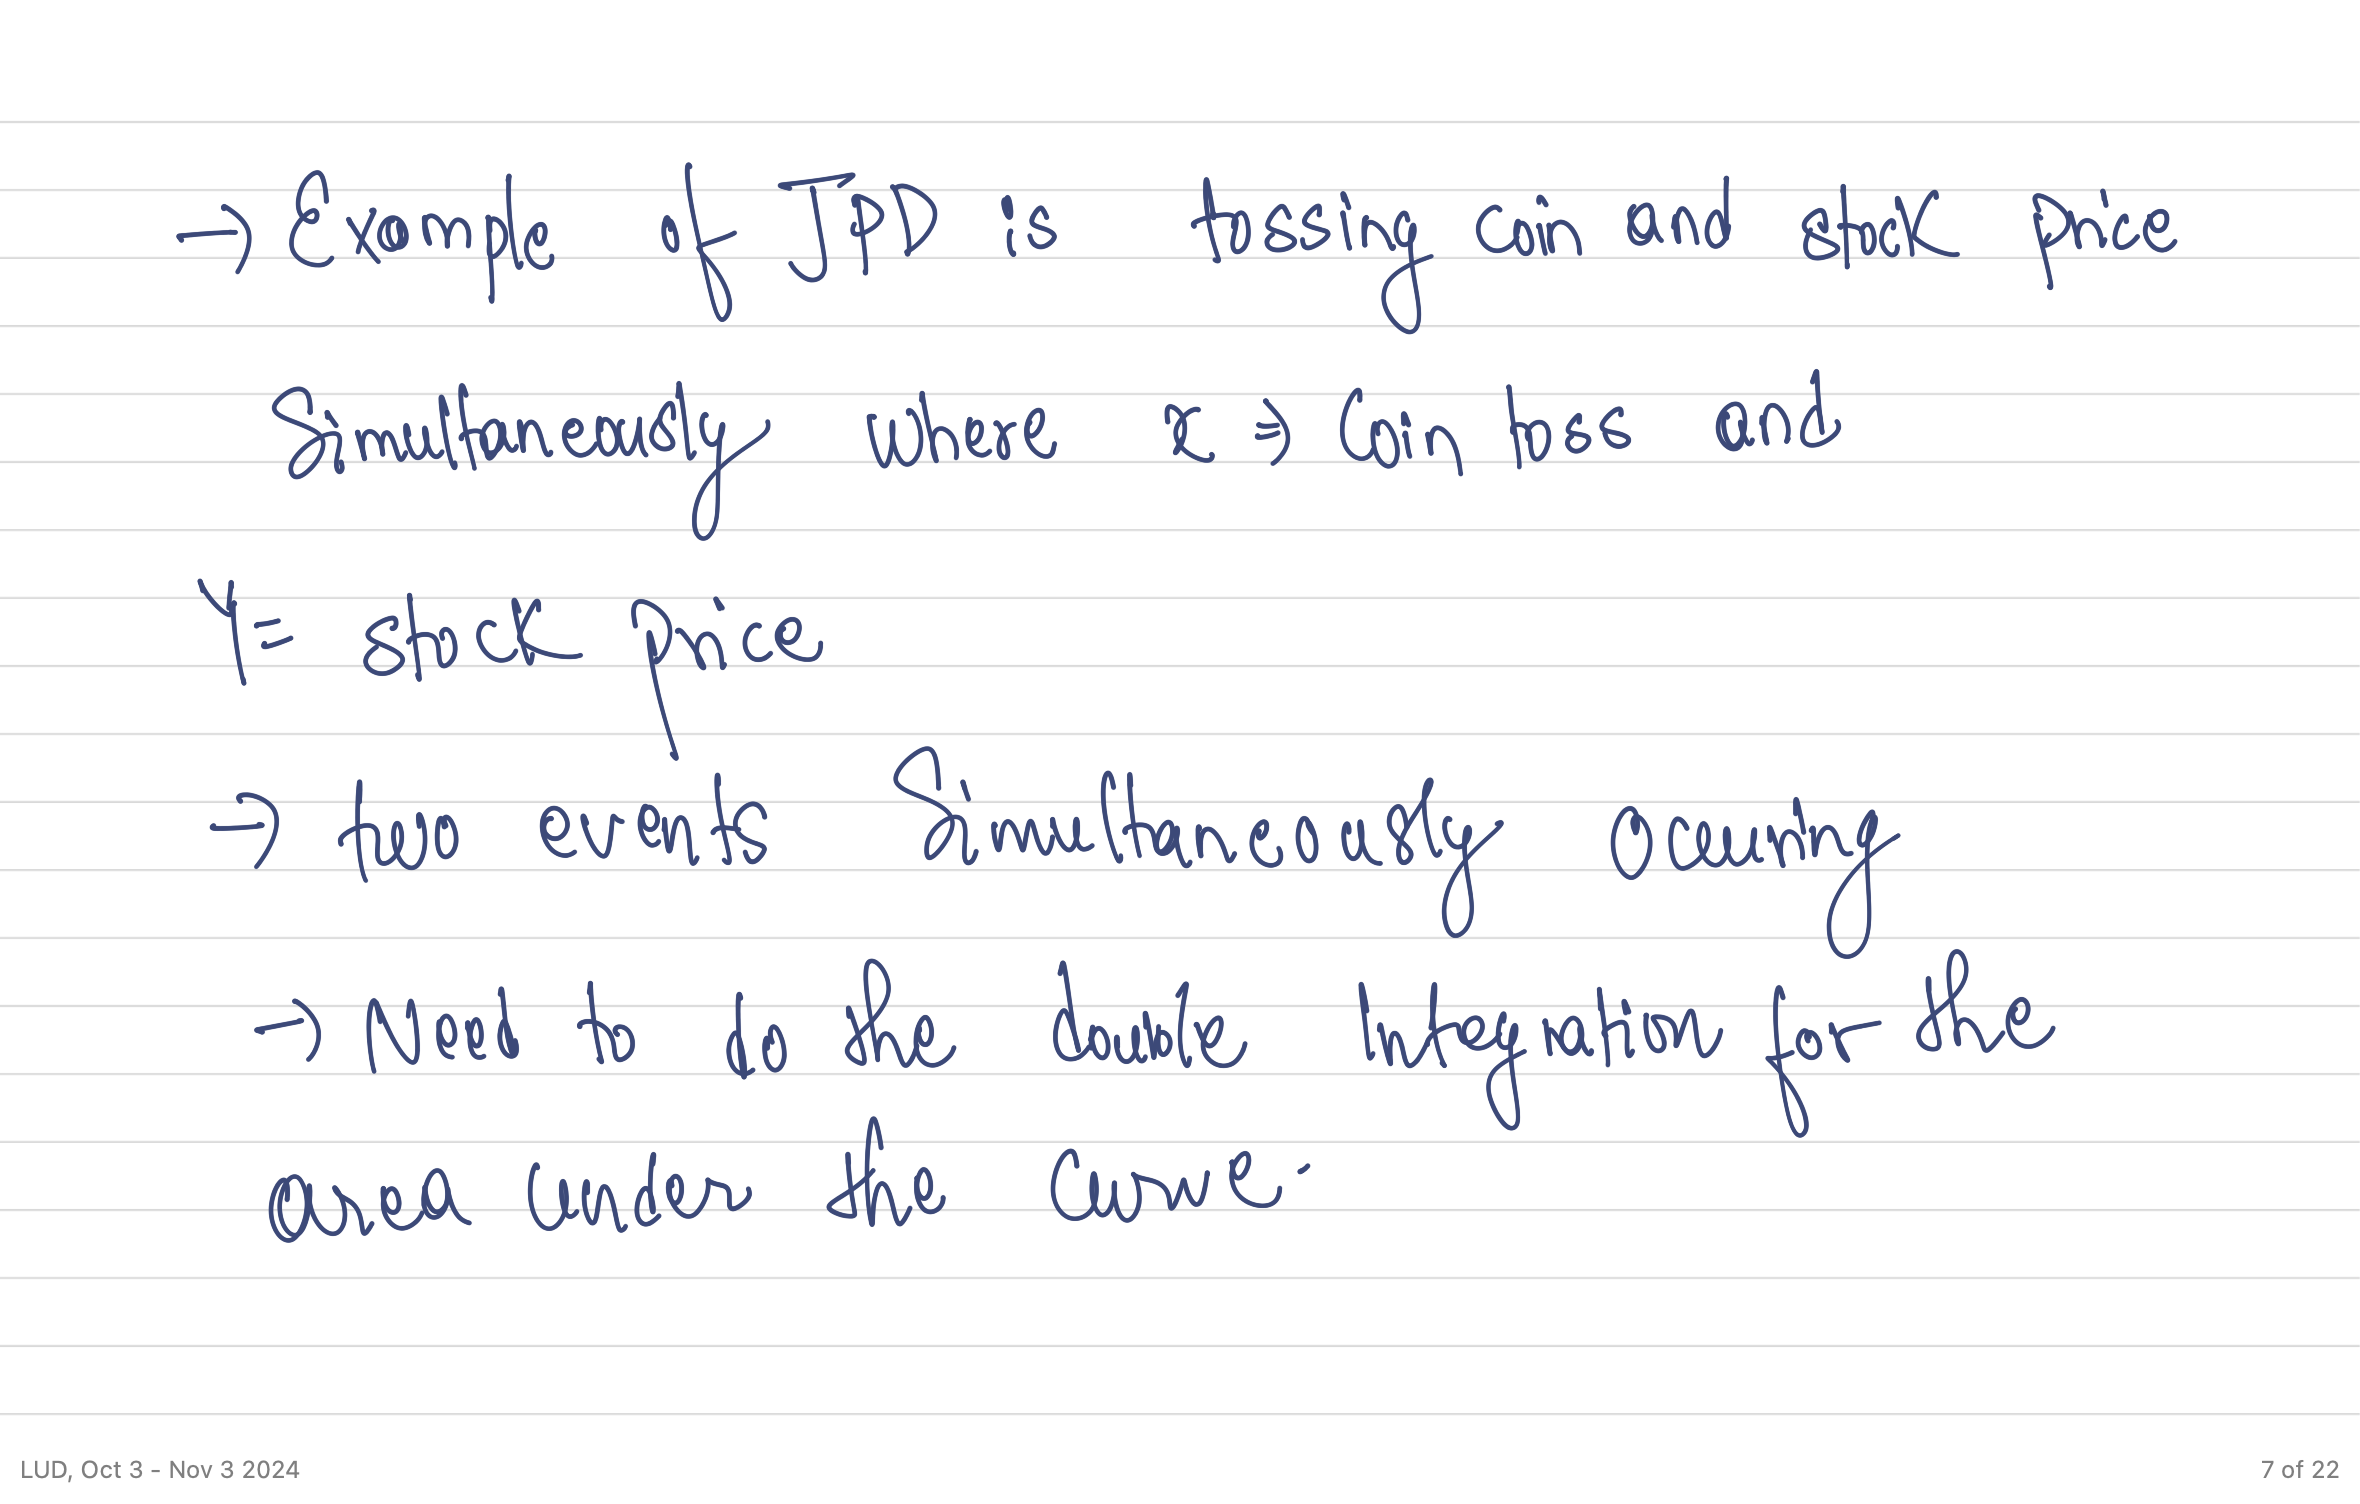 → Example of JPD is tossing coin and stock price
Simultaneously where x ⇒ Coin toss and
Y = stock price
→ two events Simultaneously Occuring
→ Need to do the double Integration for the
area under the Curve.
LUD, Oct 3 - Nov 3 2024
7 of 22